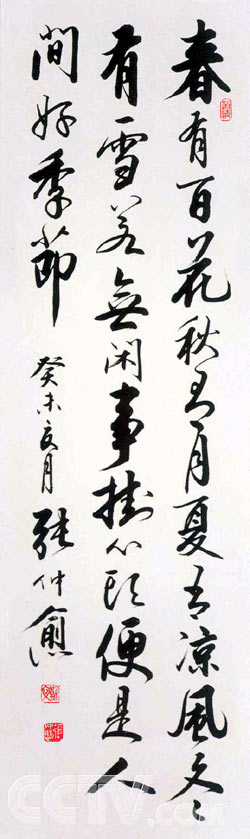 春有百花秋有月夏有凉風冬
有雪若無閑事掛心頭便是人
間好季節
癸未亥月 張仲愈
CCTV.com